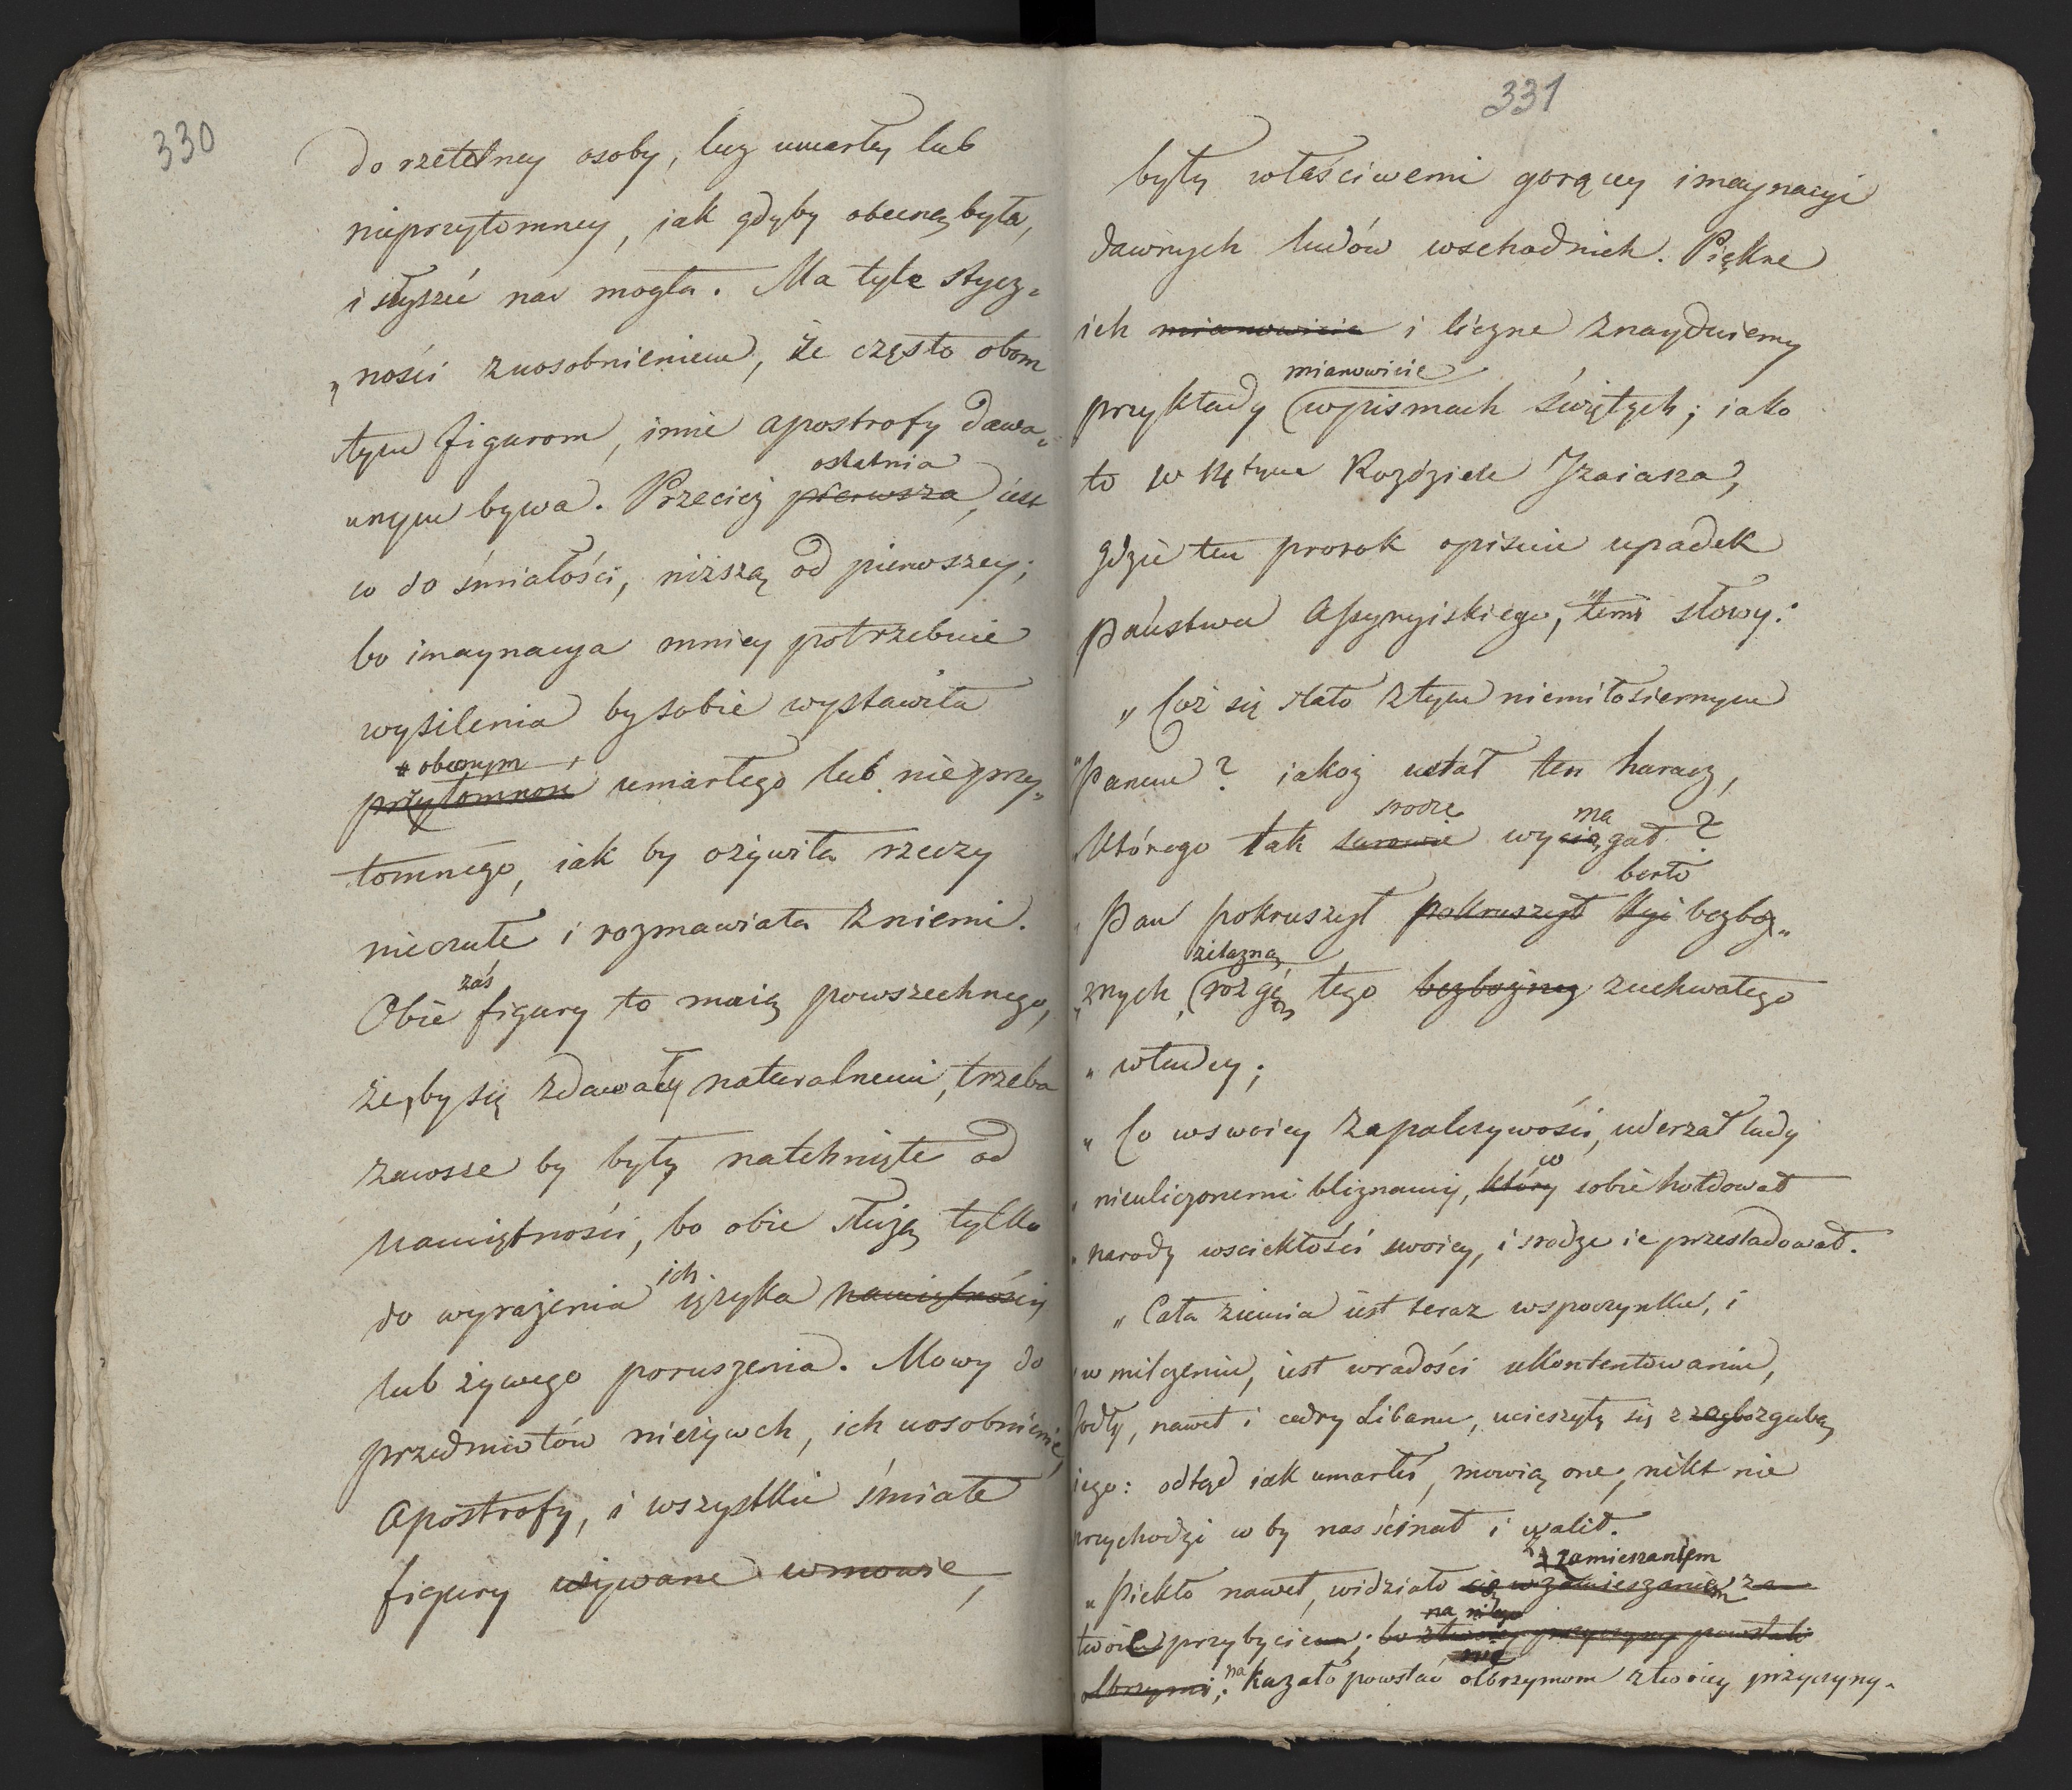 330
do rzetelney osoby, lecz umarłey lub
nieprzytomney, iak gdyby obecną była,
i słyszeć nas mogła. Ma tyle stycz„
„ności z uosobnieniem, że często obom
tym figurom, imie apostrofy dawa„
ostatnia
„nym bywa. Przecież pierwsza, iest
co do śmiałości, niższą od pierwszey;
bo imaynacya mniey potrzebuie
wysilenia by sobie wystawiła
obecnym
przytomnem umarłego lub nieprzy„
tomnego, iak by ożywiła rzeczy
nieczułe i rozmawiała z niemi.
zaś
Obie figury to maią powszechnego,
że, by się zdawały naturalnemi, trzeba
zawsze by były natchnięte od
namiętności, bo obie służą tylko
ich
do wyrażenia ięzyka namiętności
lub żywego poruszenia. Mowy do
przedmiotów nieżywch, ich uosobnienie,
Apostrofy, i wszystkie śmiałe
figury używane w mowie,
331
były właściwemi gorącey imaynacyi
dawnych ludów wschodnich. Piękne
ich mianowicie i liczne znayduiemy
mianowicie
przykłady w pismach świętych; iako
to w 14tym Rozdziele Izaiasza,
gdzie ten prorok opisuie upadek
Państwa Assyryiskiego, temi słowy:
„Coż się stało z tym niemiłosiernym
"Panem? iakoż ustał ten haracz,
srodze ma
„którego tak surowie wyciągał?
berło
„Pan pokruszył pokruszył kyi bezboż„
żelazną
„znych, rozgę tego bezbożney zuchwałego
„władcy;
„Co w swoiey zapalczywości, uderzał ludy
co
„nieuliczonemi bliznamy, który sobie hołdował
„narody wsciekłości swoiey, i srodze ie przesladował.
„Cała ziemia iest teraz w spoczynku, i
„w milczeniu, iest w radości ukontentowaniu,
Jodły, nawet i cedry Libanu, ucieszyły się z zagubą
iego: odtąd iak umarłeś, mowią one, nikt nie
przychodzi co by nas ścinał i walił.
z zamieszaniem
„Piekło nawet, widziało się w zamieszaniu za
na niego
twoie przybyciem; bo z twoiey przyczyny powstali
olbrzymi; nakazało powstać olbrzymom z twoiey przyczyny.